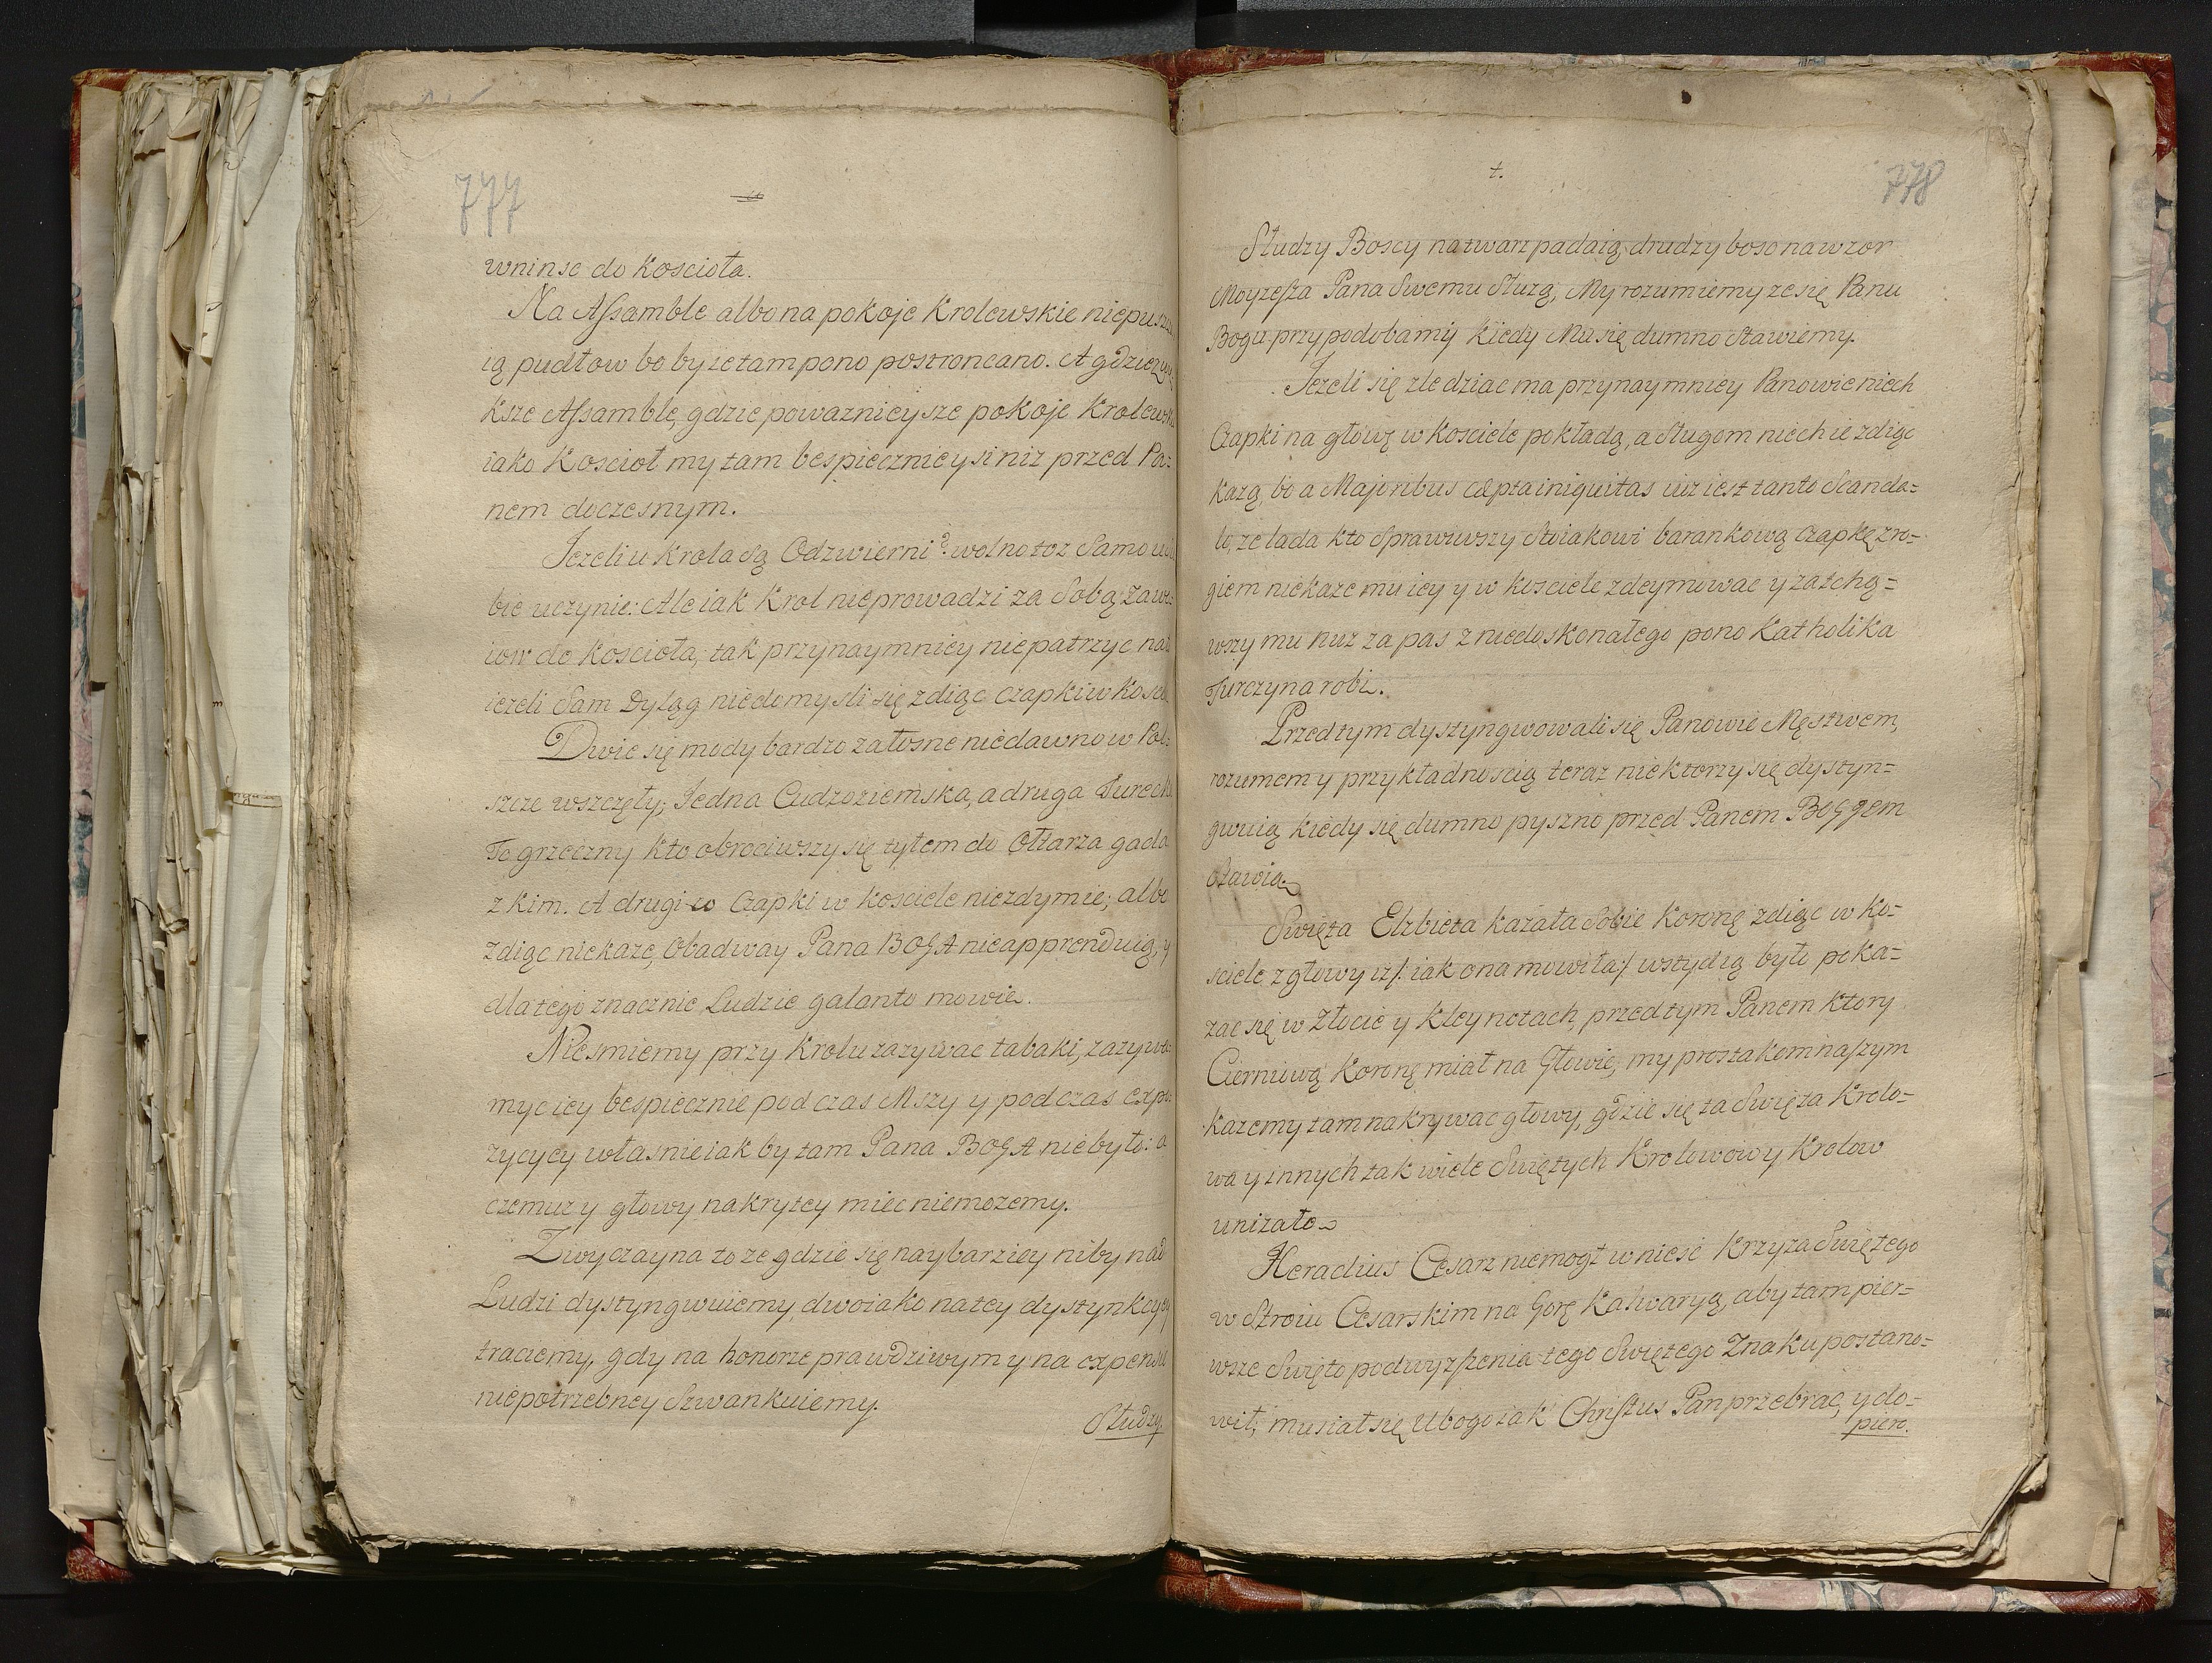 777
wninsc do Koscioła.
Na Aſsamble albo na pokoje Krolewskie niepuszcz
ią pudłow bo by ie tam pono postroncano. A gdzie wię
ksze Aſsamble, gdzie powaznieysze pokoje Krolewsk
iako Koscioł my tam bespiecznieysi niz przed Pa=
nem doczesnym.
Jezeli u Krola są Odzwierni? wolno toz Samo u
bie uczynic: Ale iak Krol nieprowadzi za Sobą
iow do Koscioła, tak przynaymniey niepatrzyc na
iezeli Sam Dyląg niedomysli się zdiąc czapki w Kosc
Dwie się mody bardzo załosne niedawno w Pol=
szcze wszczęły; Jedna Cudzoziemska, a druga Tureck
To grzeczny kto obrociwszy się tyłem do Ołtarza gada
z kim. A drugi co Czapki w kosciele niezdymie; albo
zdiąc niekaze, Obadway Pana BOGA nieapprenduią, y
dla tego znacznie Ludzie galanto mowie.
Niesmiemy przy Krolu zazywac tabaki, zazywa=
myc iey bespiecznie pod czas Mszy y pod czas expo=
zycycy własnie iak by tam Pana BOGA niebyło: a
czemuz y głowy nakrytey miec niemozemy.
Zwyczayna to ze gdzie się naybarziey niby nad
Ludzi dystyngwuiemy, dwoiako na tey dystynkcyi
traciemy, gdy na honorze prawdziwym y na expensie
niepotrzebney Szwankuiemy.
Słudzy
t.
778
Słudzy Boscy na twarz padaią, drudzy boso na wzor
Moyzeſza Pana Swemu Słuzą, My rozumiemy ze się Panu
Bogu przypodobamy kiedy Mu się dumno Stawiemy.
Jezeli się zle dziac ma przynaymniey Panowie niech
Czapki na głowę w Kosciele pokładą, a Sługom niech ie zdiąc
kazą, bo a Majoribus cæpta iniquitas iuz iest tanto Scanda=
lo, ze lada kto Sprawiwszy Stoiakowi barankową czapkę z ro=
giem niekaze mu iey y w kosciele zdeymowac y zatchą=
wszy mu nuz za pas z niedoskonałego pono Katholika
Turczyna robi.
Przedtym dystyngwowali się Panowie Męstwem,
rozumem y przykładnoscią teraz niektorzy się dystyn=
gwuią kiedy się dumno pyszno przed Panem BOGGEM
stawią.
Swięta Elzbieta kazała Sobie Koronę zdiąc w Ko=
sciele z głowy iz /: iak ona mowiła :/ wstydią było poka=
zac się w Złocie y Kleynotach, przed tym Panem ktory
Cierniową Koronę miał na Głowie, my prostakom naſzym
kazemy tam nakrywac głowy, gdzie się ta Swięta Krolo=
wa y innych tak wiele Swiętych Krolowow y Krolow
unizało.
Heraclius Cesarz niemogł wniesc Krzyza Swiętego
w Stroiu Cesarskim na Gorę Kalwaryą, aby tam pier=
wsze Swięto podwyzſzenia tego Swiętego Znaku postano=
wił, musiał się Ubogo iak Chriſtus Pan przebrac, y do=
piero.